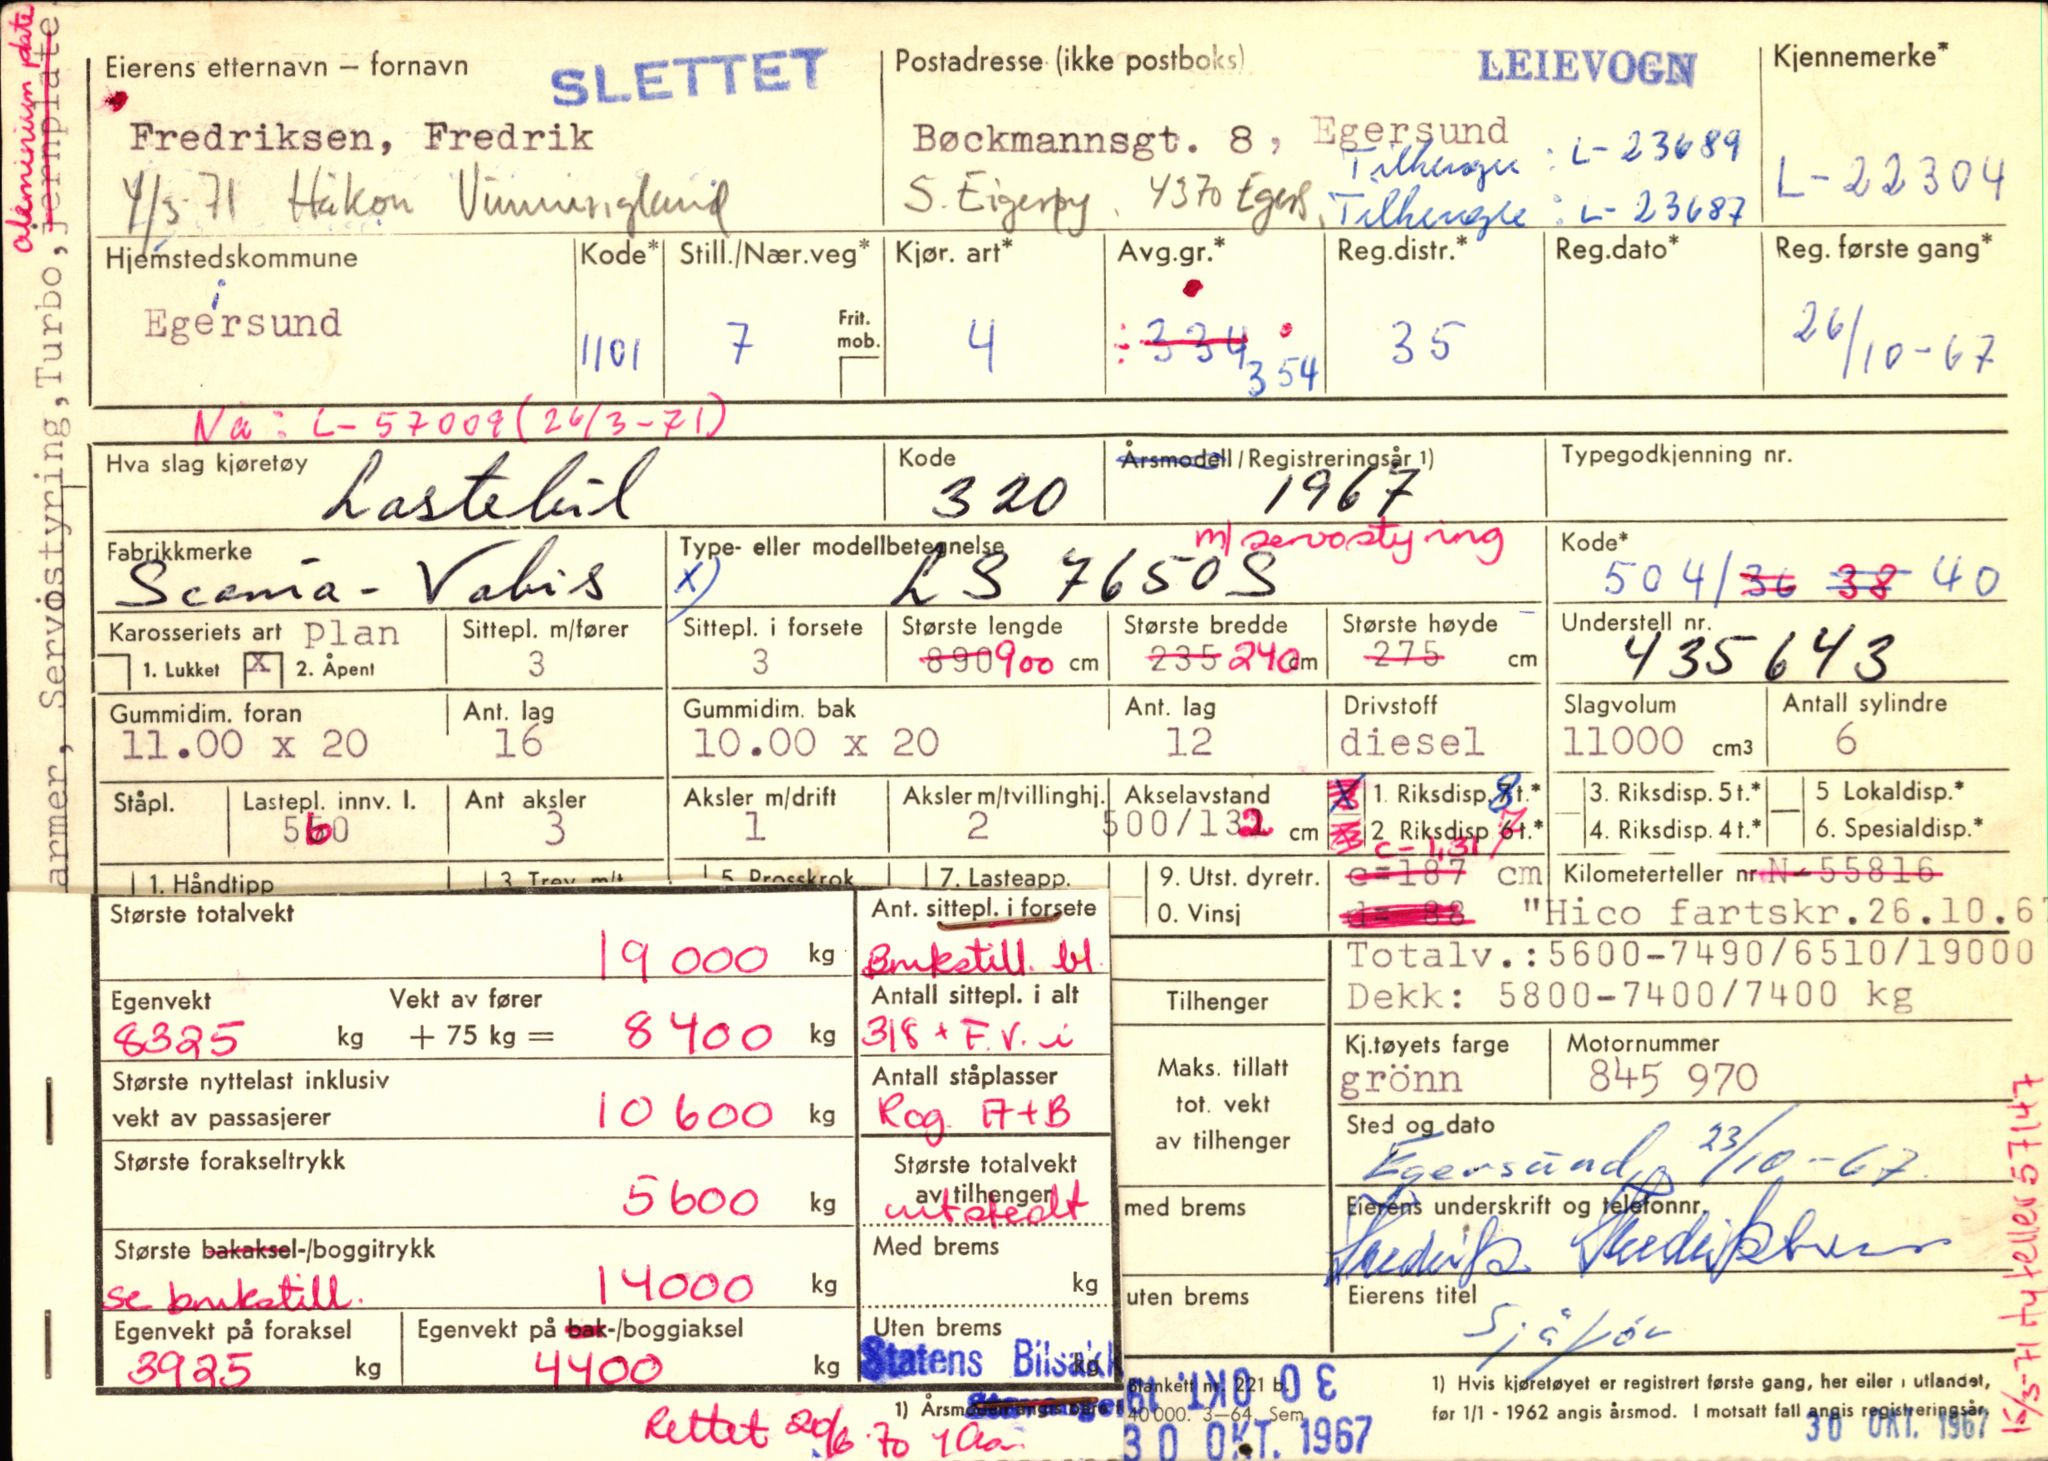 Eierens etternavn – fornavn
SLETTET
Fredriksen, Fredrik
4/3-71 Håkon
Postadresse (ikke postboks)
LEIEVOGN
Bøckmannsgt. 8, Egersund
Tilhenger : L-23689
S. Eigerøy, 4370 Egers.
Tilhenger : L-23687
Kjennemerke*
L-22304
Hjemstedskommune
Egersund
Kode*
1101
Still./Nær.veg*
7
Frit.
mob.
Kjør. art*
4
Avg.gr.*
334
354
Reg.distr.*
35
Reg.dato*
Reg. første gang*
26/10-67
Nå: L-57009 (26/3-71)
Hva slag kjøretøy
Lastebil
Kode
320
Årsmodell/Registreringsår 1)
1967
Typegodkjenning nr.
Fabrikkmerke
Scania-Vabis
Type- eller modellbetegnelse
m/servostyring
x) LS 7650S
Kode*
504/36 38 40
Karosseriets art plan
1. Lukket x 2. Åpent
Sittepl. m/fører
3
Sittepl. i forsete
3
Største lengde
890 900 cm
Største bredde
235 240 cm
Største høyde
275 cm
Understell nr.
435643
Gummidim. foran
11.00 x 20
Ant. lag
16
Gummidim. bak
10.00 x 20
Ant. lag
12
Drivstoff
diesel
Slagvolum
11000 cm3
Antall sylindre
6
Ståpl.
Lastepl. innv. l.
560
Ant aksler
3
Aksler m/drift
1
Aksler m/tvillinghj.
2
Akselavstand
500/132 cm
X 1. Riksdisp. 8 t.*
2 Riksdisp 6t.* 7
3. Riksdisp. 5 t.*
4. Riksdisp. 4 t.*
5 Lokaldisp.*
6. Spesialdisp.*
1. Håndtipp
3. Trev. m/t.
5. Presskrok
7. Lasteapp.
9. Utst. dyretr.
0. Vinsj
c-1,31
c=187 cm
d= 88
Kilometerteller nr N-55816
"Hico fartskr.26.10.67
Totalv.:5600-7490/6510/19000
Dekk: 5800-7400/7400 kg
Største totalvekt
19 000 kg
Egenvekt
8325 kg
Vekt av fører
+ 75 kg = 8400 kg
Største nyttelast inklusiv
vekt av passasjerer
10 600 kg
Største forakseltrykk
5600 kg
Største bakaksel-/boggitrykk
se brukstill. 14000 kg
Egenvekt på foraksel
3925 kg
Egenvekt på bak-/boggiaksel
4400 kg
Ant. sittepl. i forsete
Brukstill. bl.
Antall sittepl. i alt
3/8 + F.V. i
Antall ståplasser
Rog. A+B
Største totalvekt
av tilhenger
utstedt
Med brems
kg
Uten brems
kg
Statens Bilsakk
Tilhenger
Maks. tillatt
tot. vekt
av tilhenger
med brems
uten brems
Kj.tøyets farge
grönn
Motornummer
845 970
Sted og dato
Egersund, 23/10-67
Eierens underskrift og telefonnr.
Fredrik Fredriksen
Eierens titel
Sjåfør
Blankett nr. 221 b.
40 000. 3–64. Sem
30 OKT. 19
30 OKT. 1967
1) Hvis kjøretøyet er registrert første gang, her eller i utlandet,
før 1/1 - 1962 angis årsmod. I motsatt fall angis registreringsår.
30 OKT. 1967
Rettet 20/6.70
aleminium plate
armer, Servostyring,Turbo,jernplate
15/3-71 Ny teller 57147